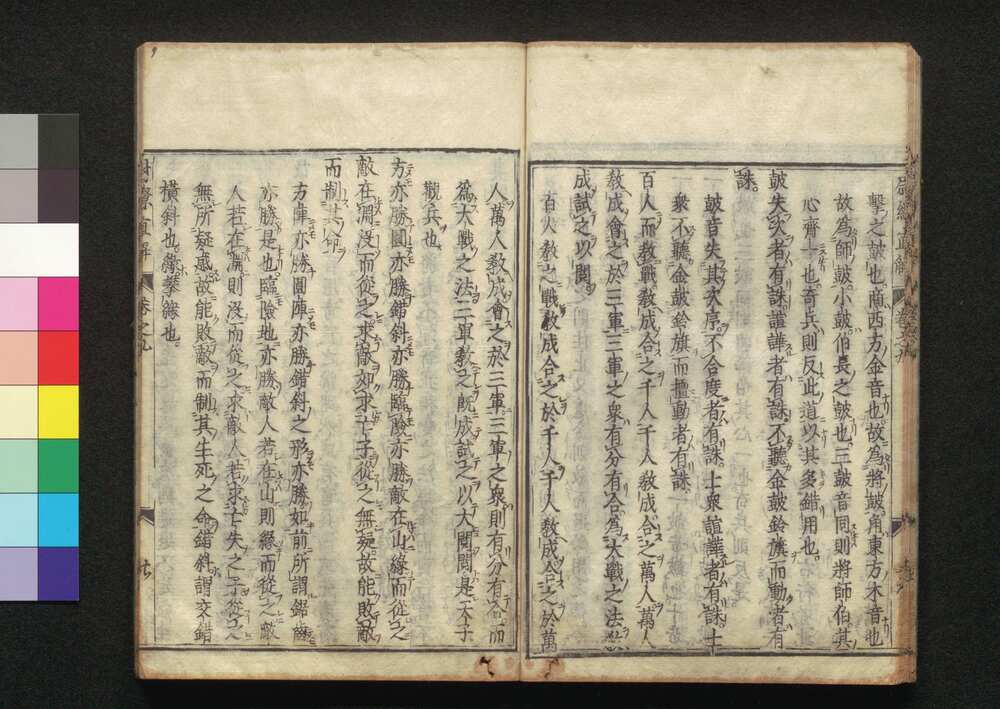 擊之鼓也商西方金音也故為將鼓角東方木音也
故為師鼓小鼓伯長之鼓也三鼓音同則將師伯其
心齊一也奇兵則反此道以其多錯用也
鼓失次者有誅諠譁者有誅不聽金鼓鈴旗而動者有
誅
鼓音失其次序不合度者有誅士衆諠譁者有誅士
衆不聽金鼓鈴旗而擅動者有誅
百人而教戰教成合之千人千人教成合之萬人萬人
教成會之於三軍三軍之衆有分有合為大戰之法
成試之以閱
百人教之戰教成合之於千人千人教成合之於萬
人萬人教成會之於三軍三軍之衆則有分有合而
為大戰之法三軍教之既成試之以大閱閱是天子
觀兵也
方亦勝圓亦勝錯斜亦勝臨險亦勝敵在山緣而從之
敵在淵沒而從之求敵如求亡子從之無疑故能敗敵
而制其命
方陣亦勝圓陣亦勝錯斜之形亦勝如前所謂鋸齒
亦勝是也臨險地亦勝敵人若在山則緣而從之敵
人若在淵則沒而從之求敵人若求亡失之子從之
無所疑惑故能敗敵而制其生死之命錯斜謂交錯
橫斜也緣攀緣也
尉繚直解
卷之九